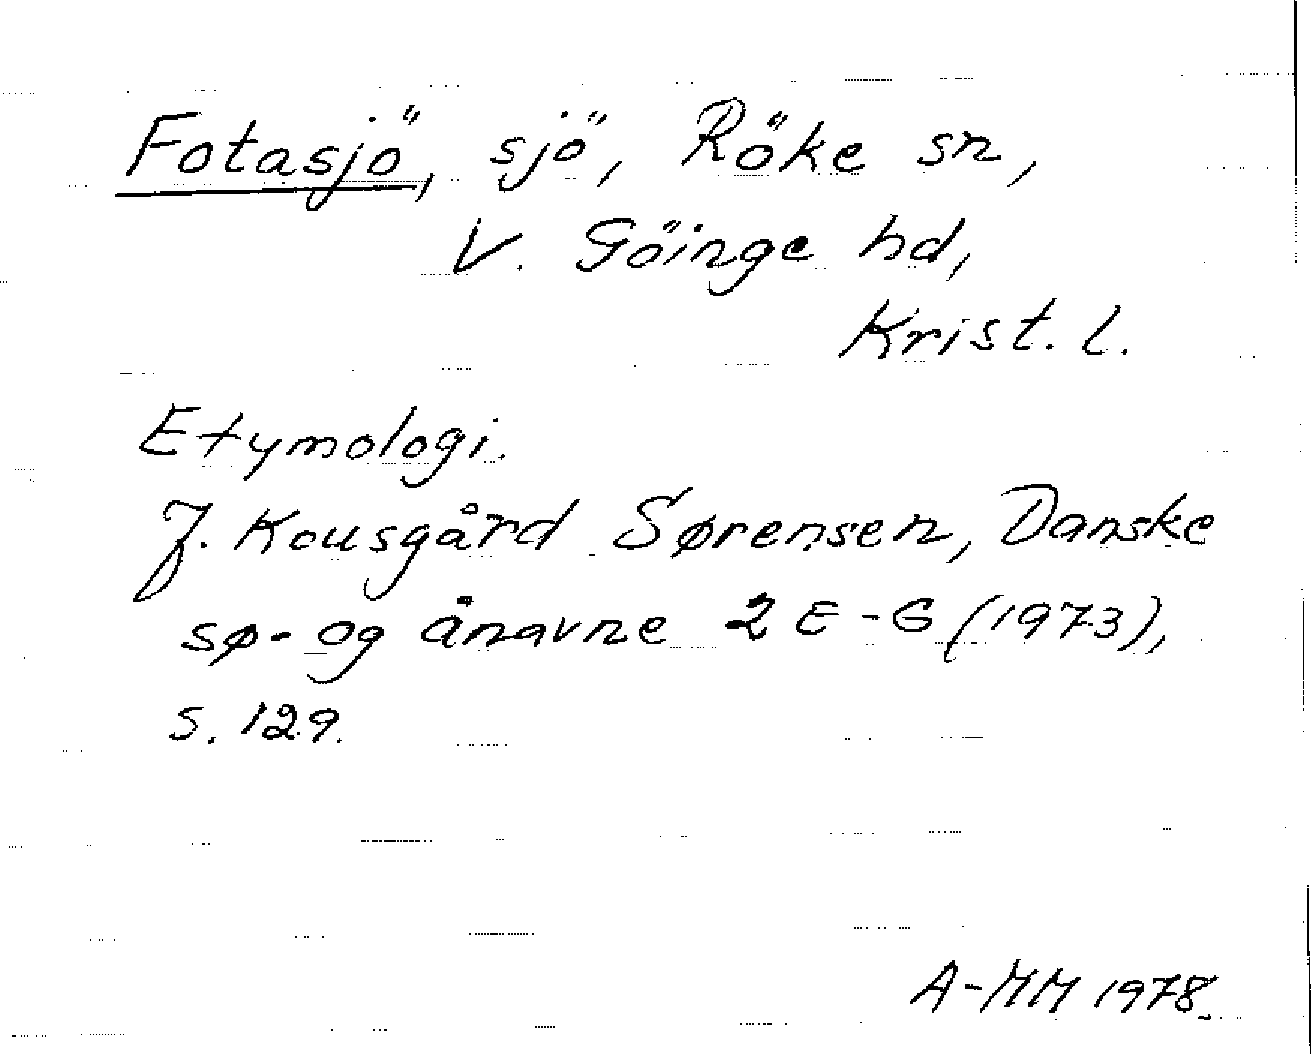 Fotasjö, sjö, Röke sn,
V. Göinge hd,
Krist. l.
Etymologi.
J. Kousgård Sørensen, Danske
sø- og ånavne 2 E-G (1973),
s. 129.
A-MM 1978.